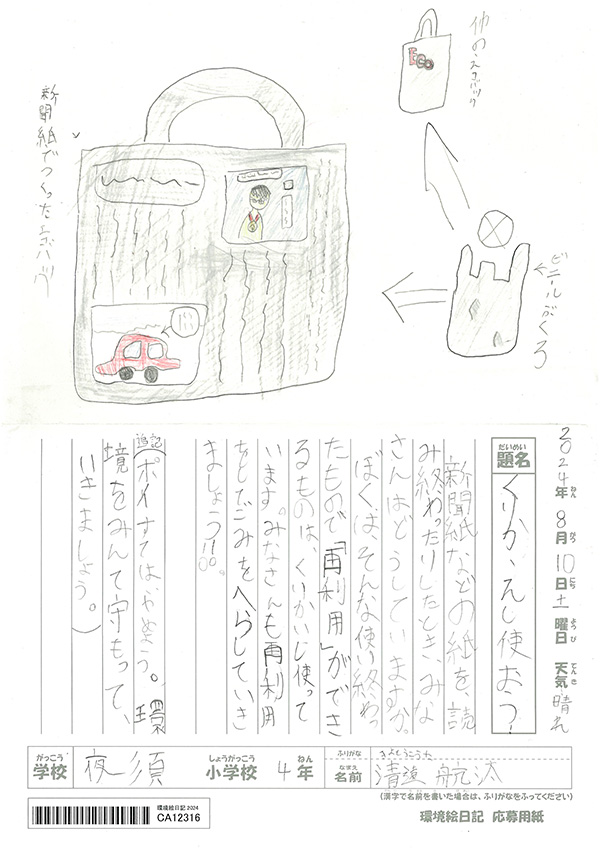 新聞紙でつくったエコバッグ
他のエコバッグ
ECO
ビニールぶくろ
2024年8月10日土曜日 天気 晴れ
ねん がつ にち ようび てんき
だいめい
題名 くりかえし使おう!
新聞紙などの紙を、読
み終わったりしたとき、みな
さんはどうしていますか。
ぼくは、そんな使い終わっ
たもので「再利用」ができ
るものは、くりかえし使って
います。みなさんも再利用
をしてごみをへらしていき
ましょう!!。
追記(ポイすてはやめよう。環
境をみんなで守もって、
いきましょう。)
がっこう しょうがっこう ねん ふりがな
学校 夜須 小学校 4年
なまえ
名前 清遠 航汰
(漢字で名前を書いた場合は、ふりがなをふってください)
環境絵日記 2024
CA12316
環境絵日記 応募用紙